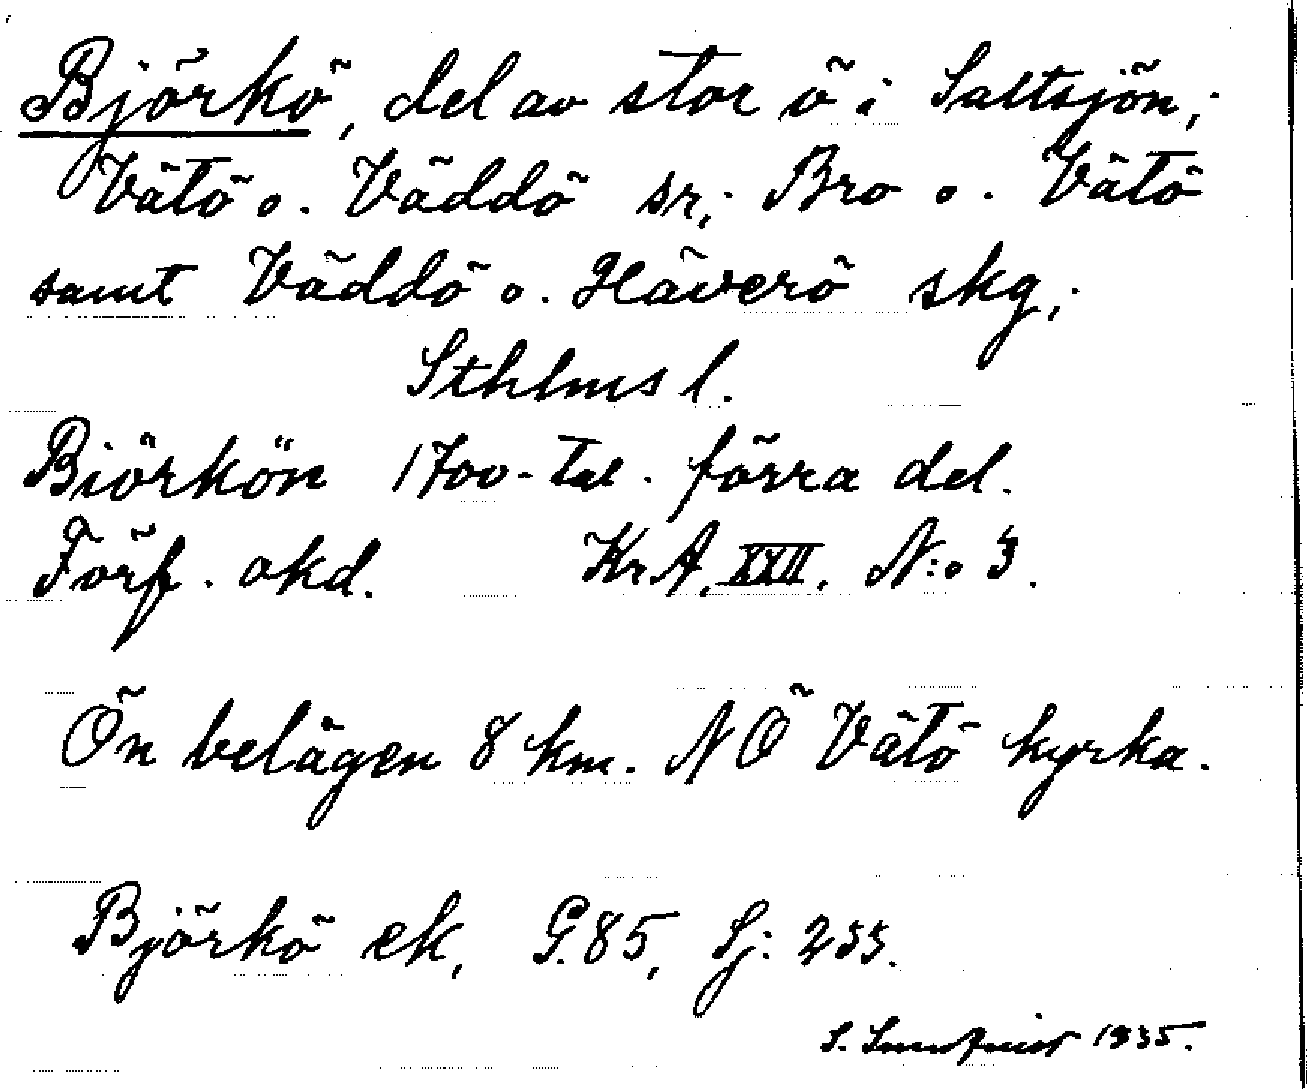 Björkö, del av stor ö i Saltsjön;
Vätö o. Väddö sr; Bro o. Vätö
samt Väddö o. Häverö skg;
Sthlms l.
Biörkön 1700-tal. förra del.
Förf. okd. KrA, XXII, N:o 3.
Ön belägen 8 km. NÖ Vätö kyrka.
Björkö ek, G.85, Sj: 233.
S. 1935.